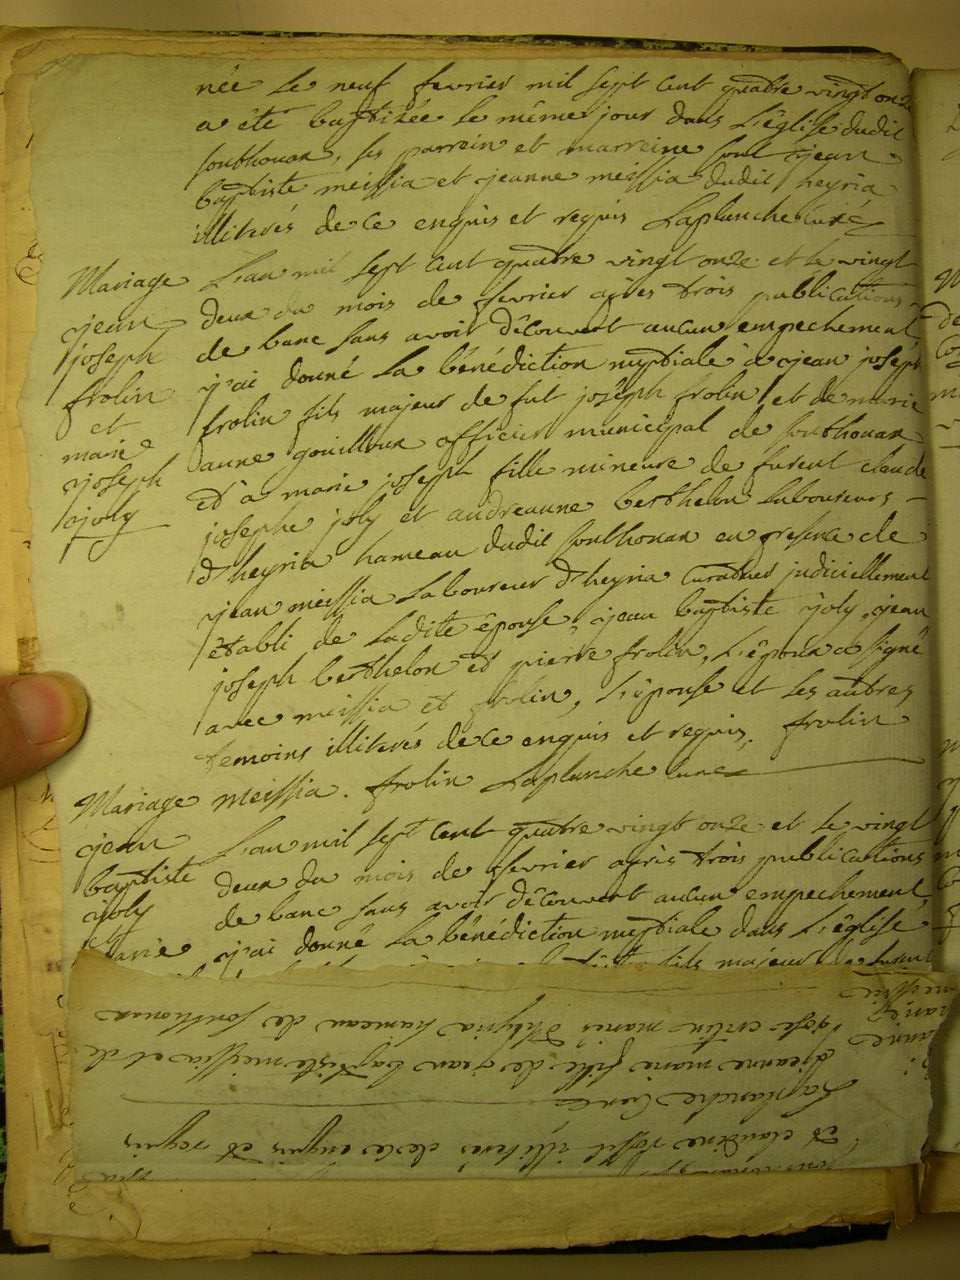 née le neuf fevrier mil sept cent quatre vingt onze
a été baptizée le même jour dans l'église dudit
fonthouan, ses parrein et marreine sont jean
baptiste meissia et jeanne meissia dudit heyria
illiterés de ce enquis et requis Laplanche curé
Mariage
jean
joseph
frolin
et
marie
joseph
joly
L'an mil sept cent quatre vingt onze et le vingt
deux du mois de fevrier après trois publications
de banc sans avoir découvert aucun empechement
j'ai donné la bénédiction nuptiale à jean joseph
frolin fils majeur de fut joseph frolin et de marie
anne gouilloux officier municipal de fonthouan
et à marie joseph fille mineure de furent claude
josephe joly et andreanne berthelon laboureurs
d'heyria hameau dudit fonthouan en presence de
jean meissia laboureur d'heyria curateur judiciellement
établi de ladite épouse, jean baptiste joly, jean
joseph berthelon et pierre frolin, l'époux a signé
avec meissia et frolin, l'épouse et les autres
temoins illiterés de ce enquis et requis. frolin
meissia. frolin Laplanche curé
Mariage
jean
baptiste
joly
et
marie
L'an mil sept cent quatre vingt onze et le vingt
deux du mois de fevrier après trois publications
de banc sans avoir découvert aucun empechement
j'ai donné la bénédiction nuptiale dans l'église
fils majeur de furent
et claudine illiterés de ce enquis et requis
Laplanche curé
jeanne marie fille de jean baptiste meissia et de
mariés d'heyria hameau de fonthouan